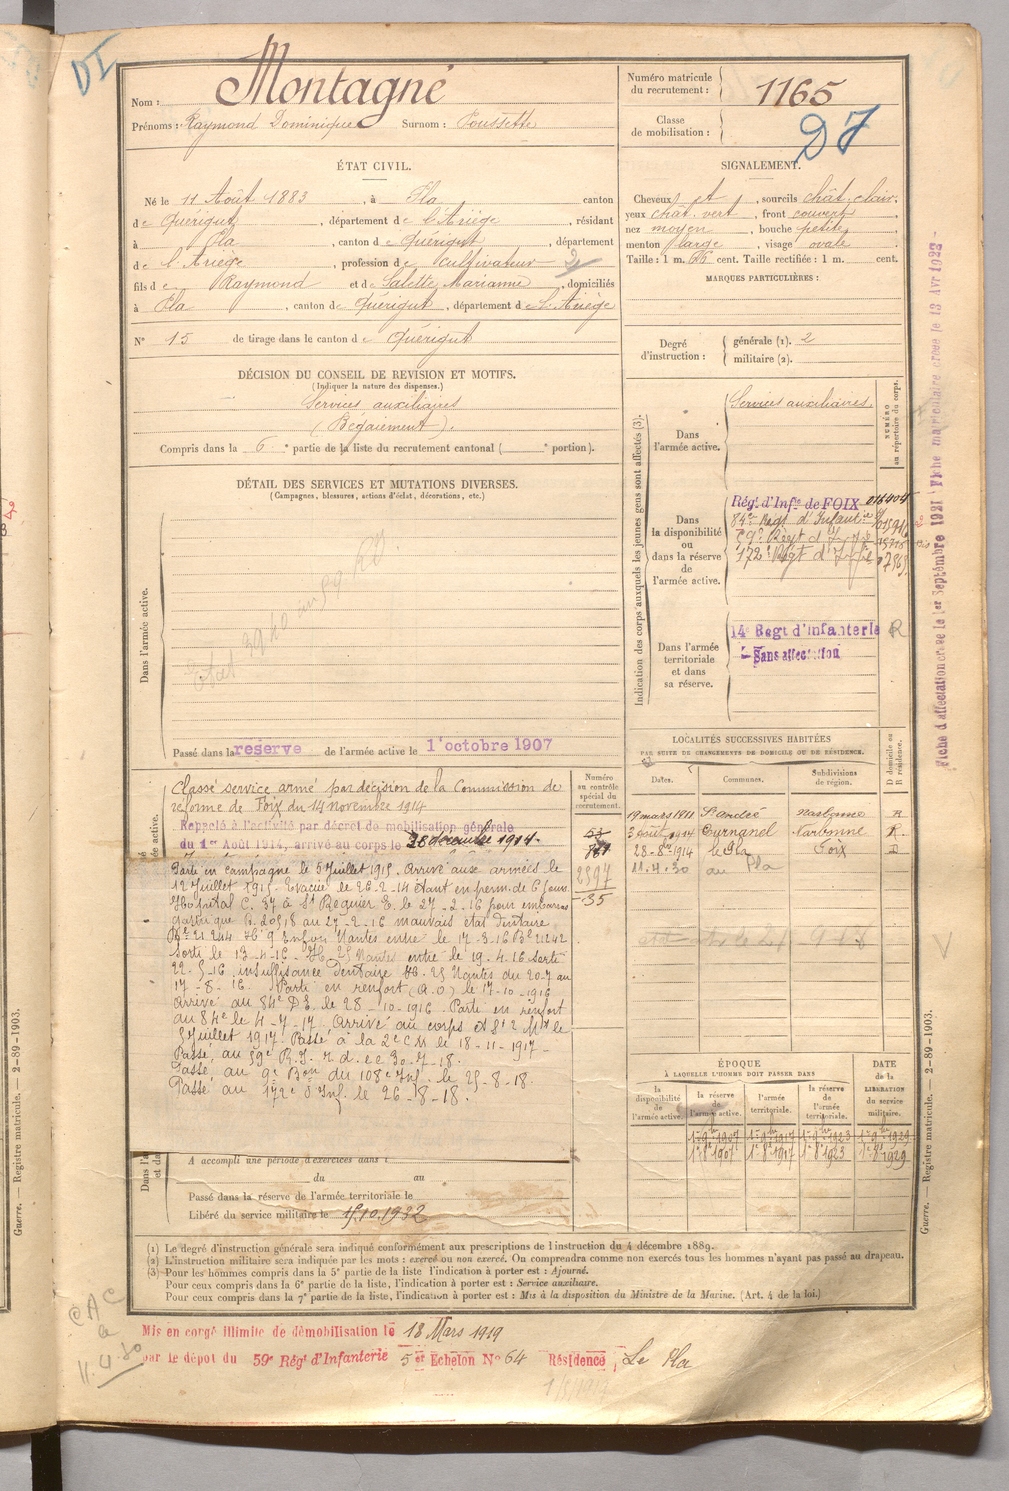 DI
Nom : Montagné
Prénoms : Raymond Dominique Surnom : Poussette
Numéro matricule du recrutement : 1165
Classe de mobilisation :
D7
ÉTAT CIVIL.
Né le 11 Août 1883, à Pla canton
de Quérigut, département de l'Ariège, résidant
à Pla, canton de Quérigut, département
de l'Ariège, profession de cultivateur
fils de Raymond et de Salette Marianne, domiciliés
à Pla, canton de Quérigut, département de l'Ariège
N° 15 de tirage dans le canton de Quérigut
SIGNALEMENT.
Cheveux et, sourcils chât. clair,
yeux chât. vert, front couvert
nez moyen, bouche petite,
menton large, visage ovale
Taille : 1 m. 66 cent. Taille rectifiée : 1 m. cent.
MARQUES PARTICULIÈRES :
Degré d'instruction : générale (1). 2
militaire (2).
DÉCISION DU CONSEIL DE REVISION ET MOTIFS.
(Indiquer la nature des dispenses.)
Services auxiliaires
(Bégaiement).
Compris dans la 6e partie de la liste du recrutement cantonal ( e portion).
DÉTAIL DES SERVICES ET MUTATIONS DIVERSES.
(Campagnes, blessures, actions d'éclat, décorations, etc.)
Dans l'armée active.
Passé dans la reserve de l'armée active le 1'octobre 1907
Indication des corps auxquels les jeunes gens sont affectés (3).
NUMÉRO au répertoire du corps.
Dans l'armée active.
Services auxiliaires.
Dans la disponibilité ou dans la réserve de l'armée active.
Rég' d'Infie de FOIX
84e Regt d'Infanterie
59e Régt d'Infie
172e Régt d'Infie
Dans l'armée territoriale et dans sa réserve.
14e Regt d'infanterie R
Sans affectation
Fiche d'affectation créée le 1er Septembre 1921 Fiche matriculaire créée le 13 Avr 1923
LOCALITÉS SUCCESSIVES HABITÉES
PAR SUITE DE CHANGEMENTS DE DOMICILE OU DE RÉSIDENCE.
Dates. Communes. Subdivisions de région. D domicile ou R résidence.
19 mars 1911 St André Narbonne R
3 août 1914 Cournanel Narbonne R.
28-8bre 1914 le Pla Foix D
11.4.30 au Pla
Numéro au contrôle spécial du recrutement.
2897
35
Classé service armé par décision de la Commission de
réforme de Foix du 14 novembre 1914
Rappelé à l'activité par décret de mobilisation générale
du 1er Août 1914, arrivé au corps le 28 décembre 1914.
Parti en campagne le 5 Juillet 1915. Arrivé aux armées le
12 Juillet 1915. Evacué le 26-2-14 étant en perm. de 6 jours
Hôpital C. 37 à St Requier E. le 27-2-16 pour embarras
gastrique B. 20518 au 27-2-16 mauvais état dentaire
Nantes entré le 17-3-16
Sorti le 13-4-16. H. 25 Nantes entré le 19.4.16 sorti
22-5-16, insuffisance Dentaire H. 25 Nantes du 20-7 au
17-8-16. Parti en renfort (A.O) le 17-10-1916
Arrivé au 84e DE. le 28-10-1916. Parti en renfort
au 84e le 4-7-17. Arrivé au corps le
5 Juillet 1917. Passé à la 2e C M le 18-11-1917-
Passé, au 59e R.I. 30-7-18.
Passé, au 9e Bon du 108e Inf. le 25-8-18.
Passé au 172e d'Inf. le 26-8-18.
A accompli une période d'exercices dans l
du au
Passé dans la réserve de l'armée territoriale le
Libéré du service militaire le 15.10.1932
ÉPOQUE
A LAQUELLE L'HOMME DOIT PASSER DANS
la disponibilité de l'armée active. la réserve de l'armée active. l'armée territoriale. la réserve de l'armée territoriale. DATE de la LIBÉRATION du service militaire.
1er 9bre 1907 1er 9bre 1917 1er 9bre 1923 1er 9bre 1929
1er 8bre 1907 1er 8bre 1917 1er 8bre 1923 1er 8bre 1929
(1) Le degré d'instruction générale sera indiqué conformément aux prescriptions de l'instruction du 4 décembre 1889.
(2) L'instruction militaire sera indiquée par les mots : exercé ou non exercé. On comprendra comme non exercés tous les hommes n'ayant pas passé au drapeau.
(3) Pour les hommes compris dans la 5e partie de la liste, l'indication à porter est : Ajourné.
Pour ceux compris dans la 6e partie de la liste, l'indication à porter est : Service auxiliaire.
Pour ceux compris dans la 7e partie de la liste, l'indication à porter est : Mis à la disposition du Ministre de la Marine. (Art. 4 de la loi.)
Guerre. — Registre matricule. — 2-89-1903.
Guerre. — Registre matricule. — 2-89-1903.
Mis en congé illimité de démobilisation le 18 Mars 1919
par le dépôt du 59e Rég' d'Infanterie 5e Echelon N° 64 Résidence, Le Pla
11.4.30